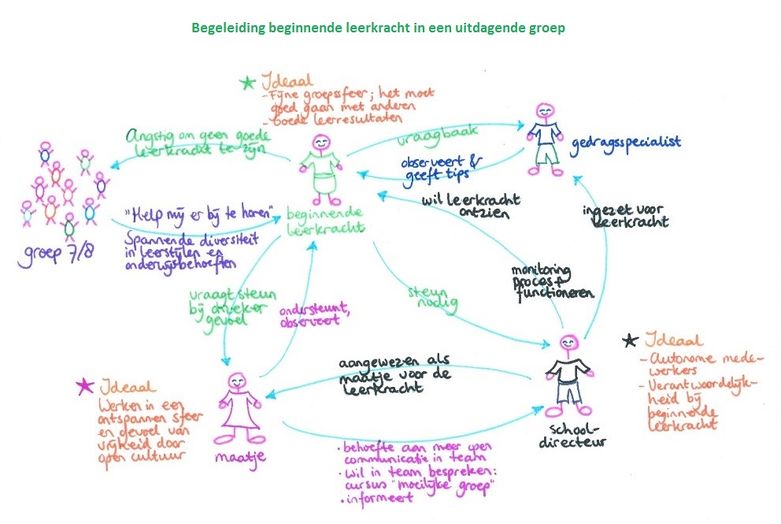 Begeleiding beginnende leerkracht in een uitdagende groep
Ideaal
- Fijne groepssfeer; het moet
goed gaan met anderen
- Goede leerresultaten
Angstig om geen goede
leerkracht te zijn
vraagbaak
observeert &
geeft tips
gedragsspecialist
"Help mij er bij te horen"
Spannende diversiteit
in leerstijlen en
onderwijsbehoeften
groep 7/8
beginnende
leerkracht
wil leerkracht
ontzien
ingezet voor
leerkracht
monitoring
proces +
functioneren
vraagt steun
bij onzeker
gevoel
ondersteunt,
observeert
steun
nodig
aangewezen als
maatje voor de
leerkracht
Ideaal
- Autonome mede-
werkers
- Verantwoordelijk-
heid bij
beginnende
leerkracht
Ideaal
Werken in een
ontspannen sfeer
en gevoel van
vrijheid door
open cultuur
maatje
school-
directeur
• behoefte aan meer open
communicatie in team
• wil in team bespreken:
cursus "moeilijke groep"
• informeert